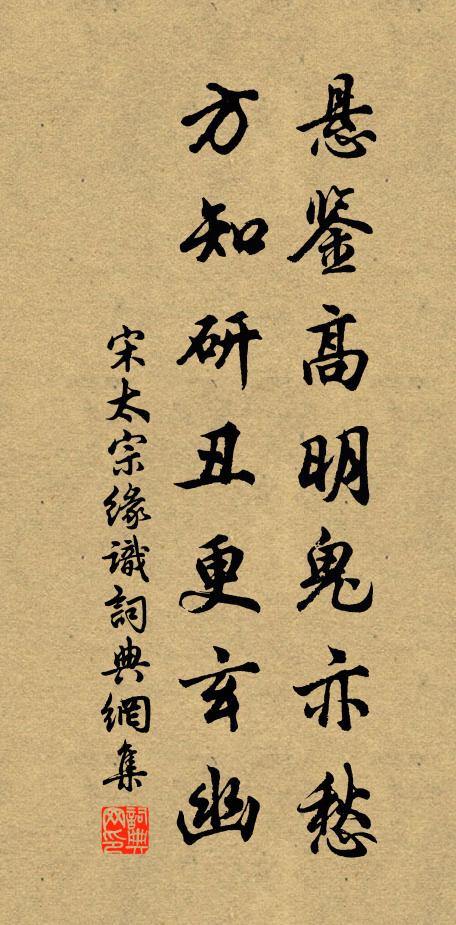 悬鉴高明鬼亦愁
方知研丑更玄幽
宋太宗缘識詞典網集
詞典网印